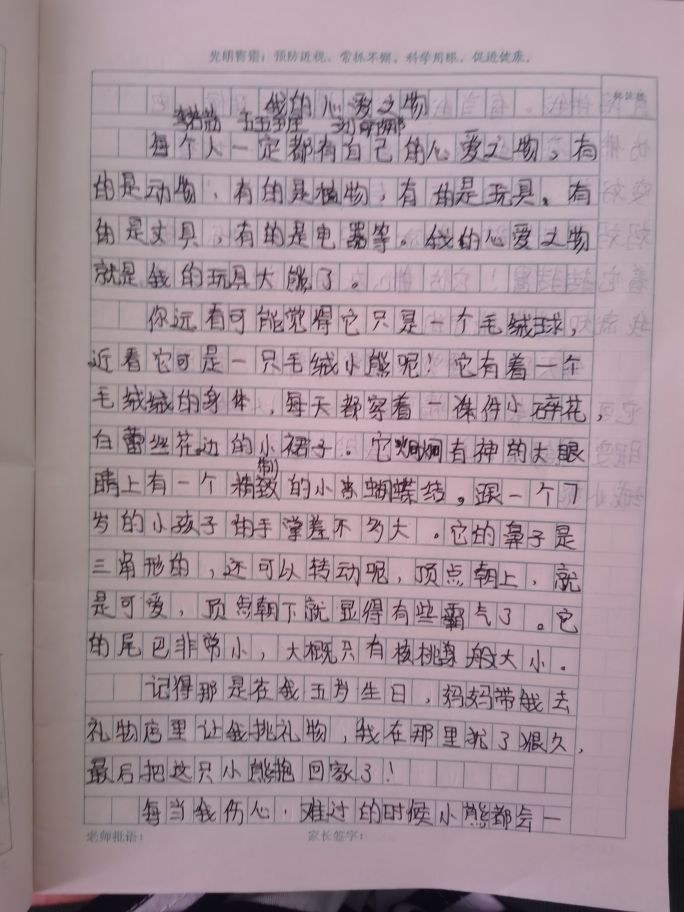 光明寄语：预防近视，常抓不懈。科学用眼，促进健康。
我的心爱之物
每个人一定都有自己的心爱之物，有
的是动物，有的是植物，有的是玩具。有
的是文具，有的是电器等。我的心爱之物
就是我的玩具大熊了。
你远看可能觉得它只是一个毛绒球，
近看它可是一只毛绒小熊呢！它有着一个
毛绒绒的身体，每天都穿着一条件小碎花，
白蕾丝花边的小裙子。它炯炯有神的大眼
睛上有一个精致的小蝴蝶结。跟一个7
岁的小孩子的手掌差不多大。它的鼻子是
三角形的，还可以转动呢，顶点朝上，就
是可爱，顶点朝下就显得有些霸气了。它
的尾巴非常小，大概只有核桃般大小。
记得那是在我五岁生日，妈妈带我去
礼物店里让我挑礼物，我在那里犹了狠久，
最后把这只小熊抱回家了！
每当我伤心，难过的时候小熊都会一
老师批语：
家长签字：